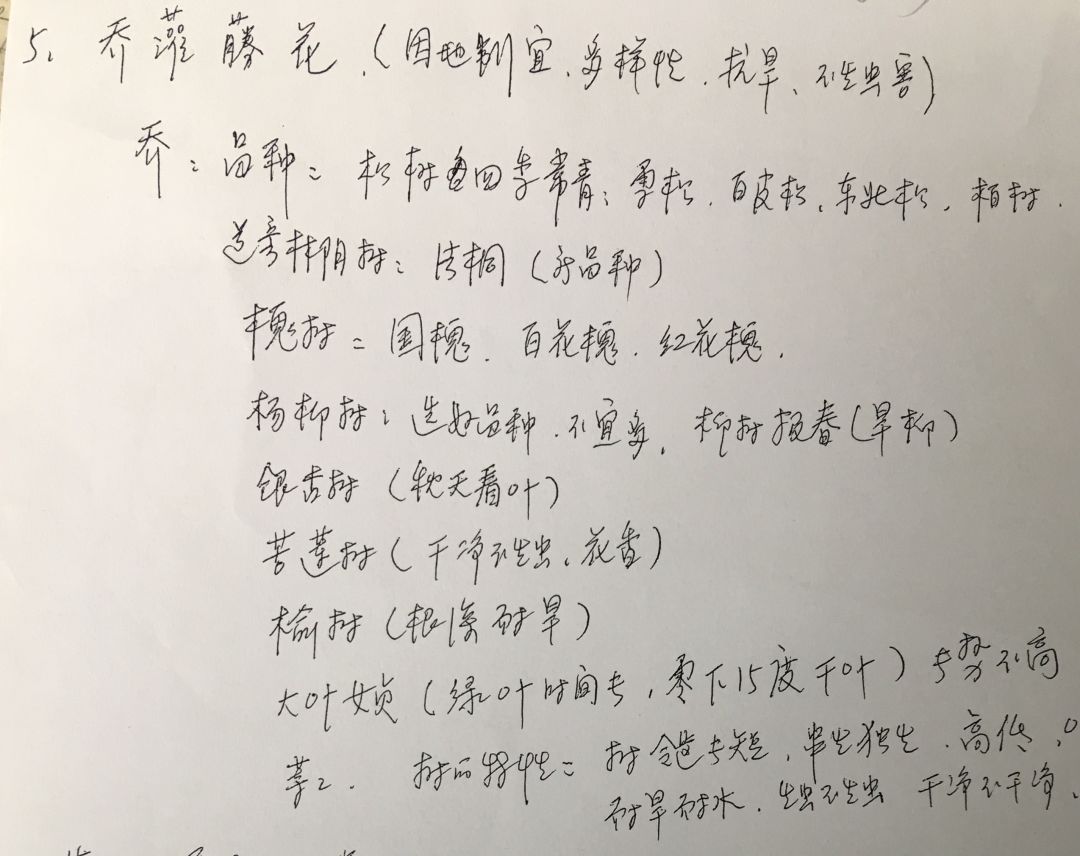 5. 乔 灌 藤 花.(因地制宜、多样性、抗旱、不生虫害)
乔:品种: 松树四季常青:雪松、白皮松、东北松、柏树.
道旁林阴树:法桐(新品种)
槐树:国槐、百花槐、红花槐.
杨柳树:选好品种、不宜多, 柳树报春(旱柳)
银杏树(秋天看叶)
苦莲树(干净不生虫、花香)
榆树(根深耐旱)
大叶女贞(绿叶时间长,零下15度干叶)长势不高
等2. 树的特性:树令长短、单生独生、高低、
耐旱耐水、生虫不生虫 干净不干净、